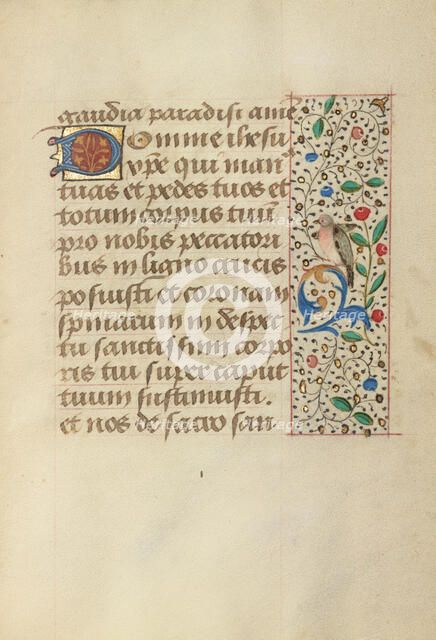 gaudia paradisi ame
Domine ihesu
xpe qui man
tuas et pedes tuos et
totum corpus tuū
pro nobis peccatori
bus in ligno crucis
posuisti et coronam
spinarum in despec
tu sanctissimi corpo
ris tui super caput
tuum sustinuisti.
et nos de sacro san
Heritage
Heritage
Heritage
Heritage
Heritage
Heritage